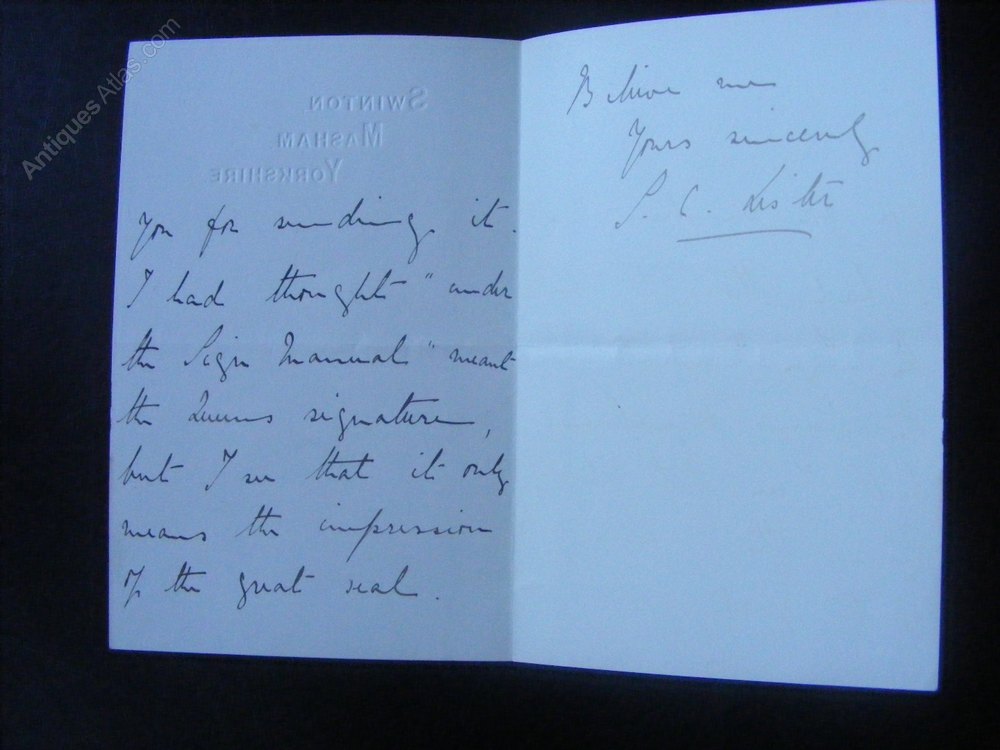 Antiques Atlas.com
SWINTON
MASHAM
YORKSHIRE
you for sending it.
I had thought "under
the Sign Manual" meant
the Queens signature,
but I see that it only
means the impression
of the great seal.
Believe me
Yours sincerely
S. C. Lister